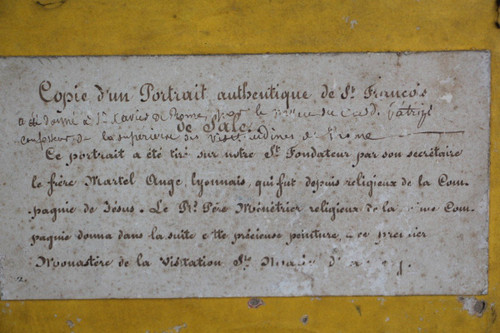 Copie d'un Portrait authentique de St. François
a été donné à St. de Rome, le du Card. Patrizi
confesseur de la supérieure des Visitandines de Rome
de Sales.
Ce portrait a été tiré sur notre St. Fondateur par son secrétaire
le frère Martel Ange, lyonnais, qui fut depuis religieux de la Com-
pagnie de Jésus. Le Rd. Père Ménétrier religieux de la Com-
pagnie donna dans la suite cette précieuse peinture premier
Monastère de la Visitation Ste.